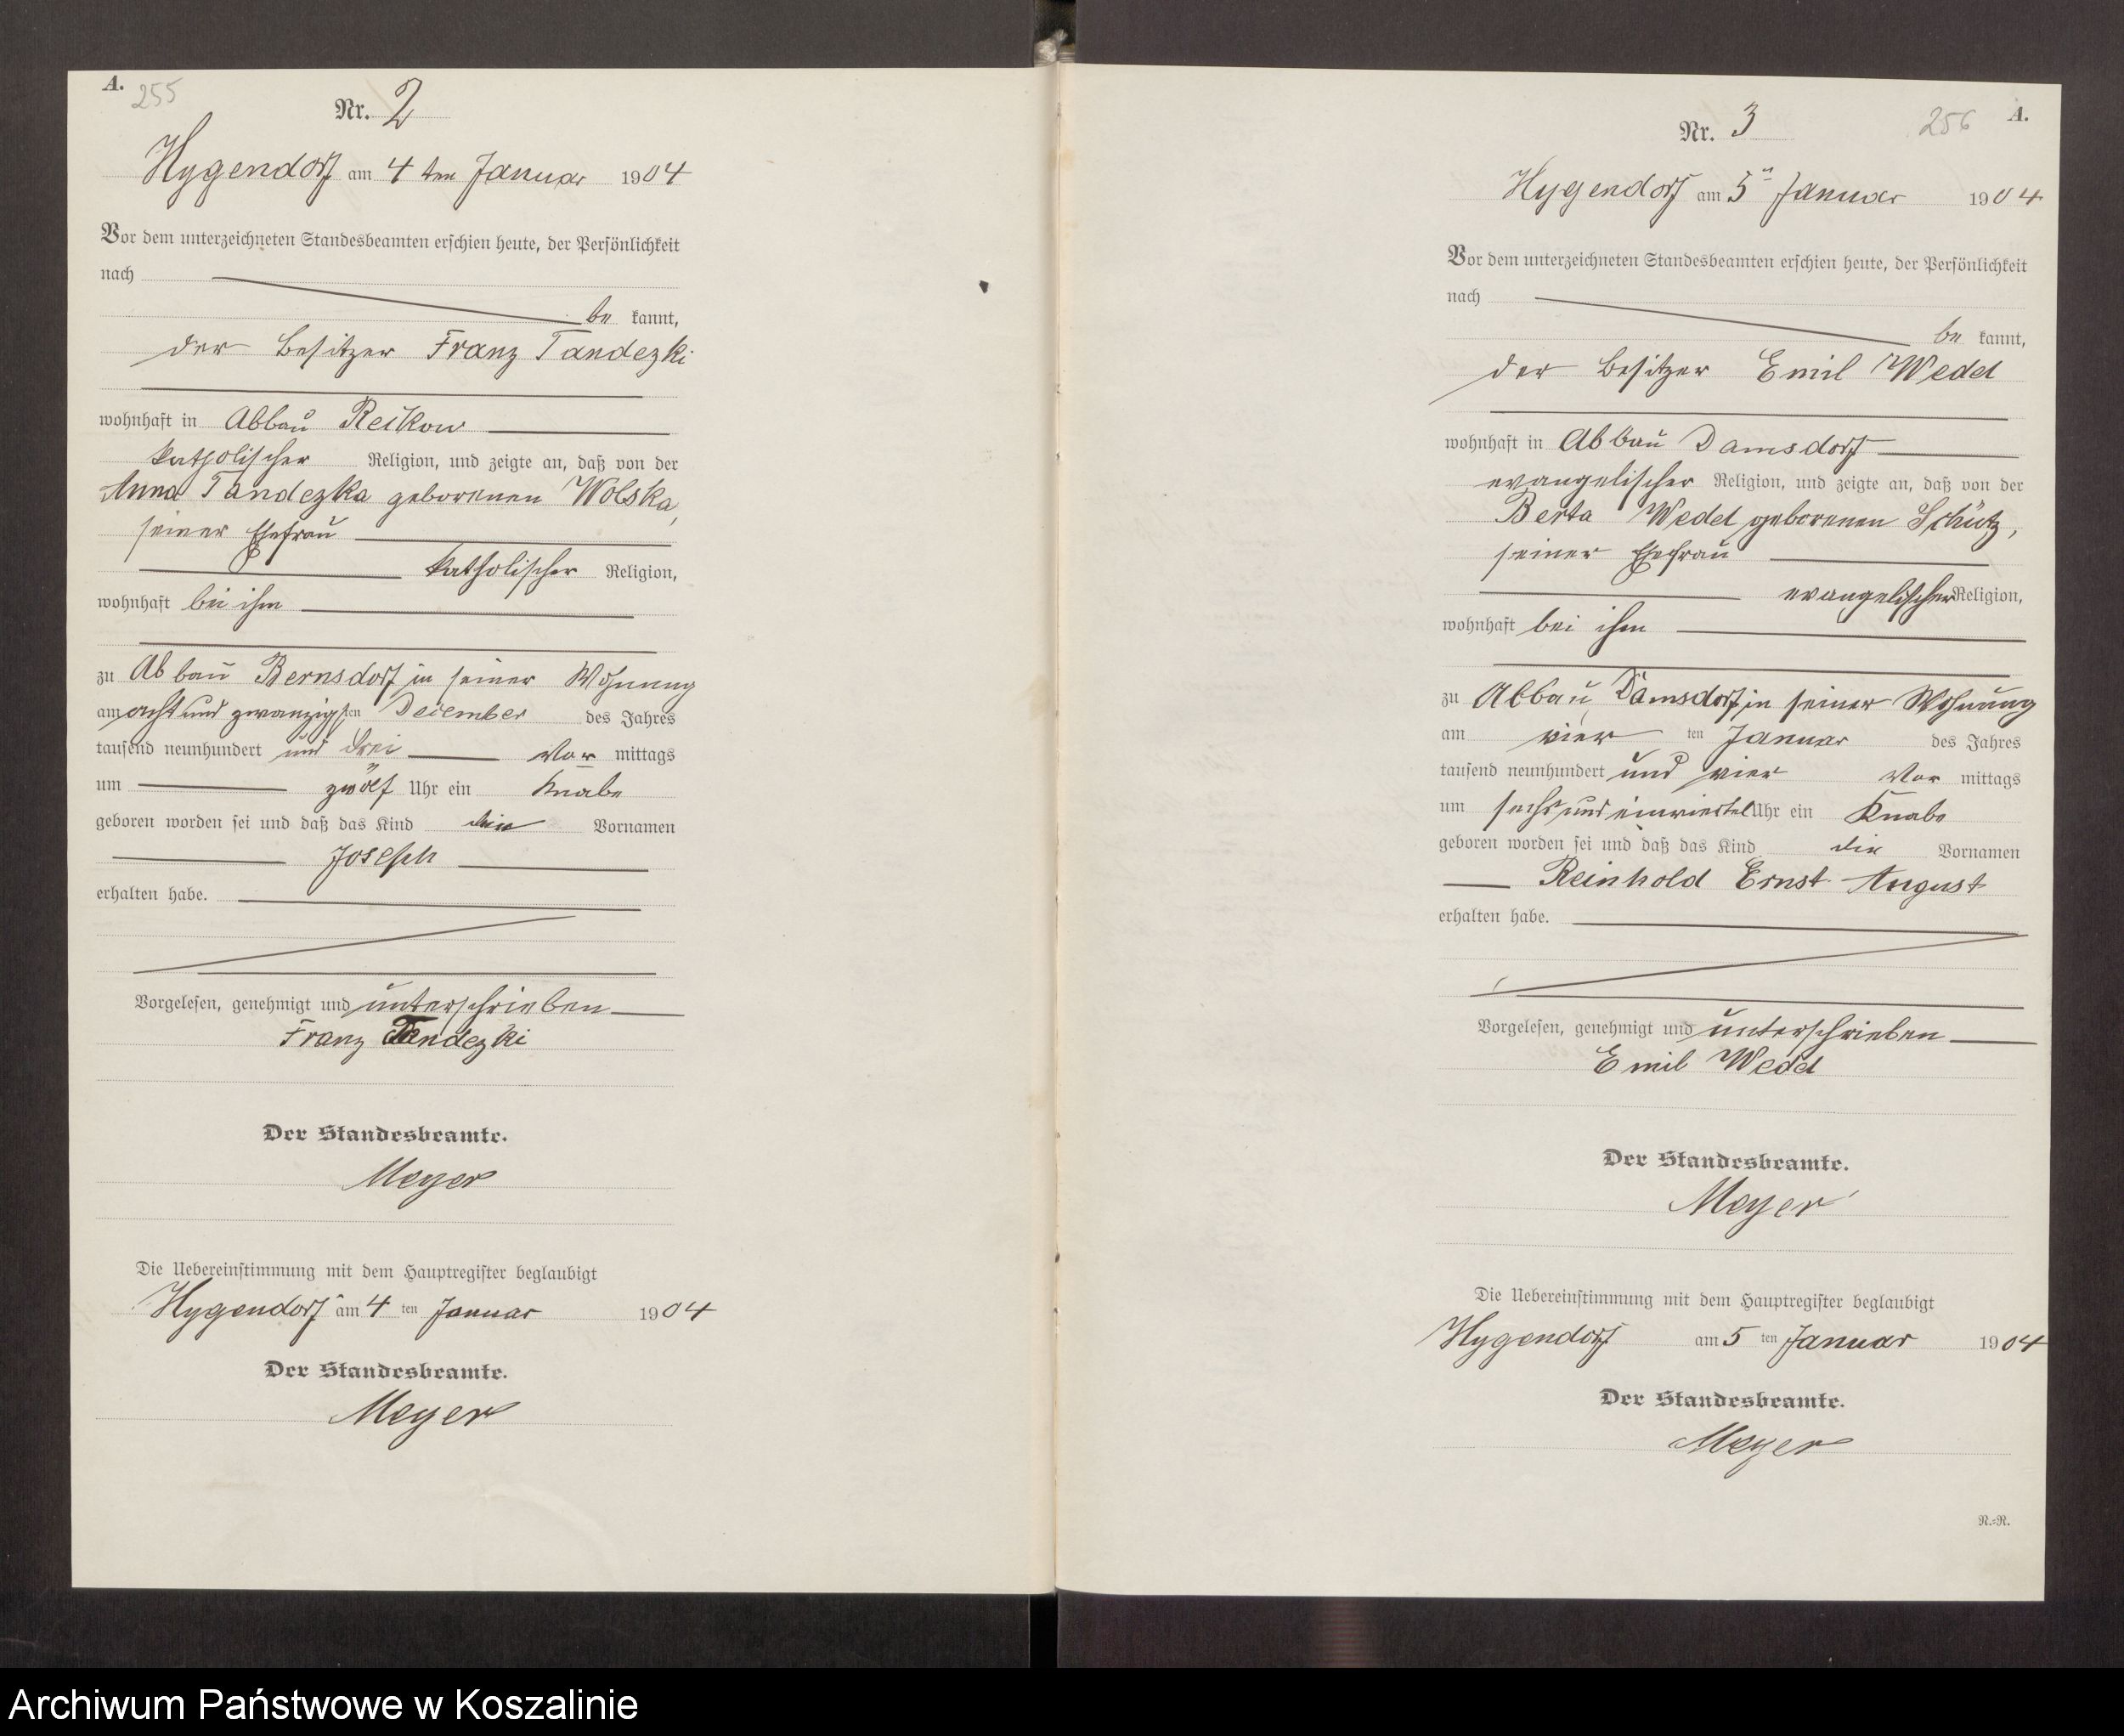 A.
255
Nr. 2
Hygendorf am 4 ten Januar 1904
Vor dem unterzeichneten Standesbeamten erschien heute, der Persönlichkeit
nach
be kannt,
der Besitzer Franz Tandezki
wohnhaft in Abbau Reckow
katholischer Religion, und zeigte an, daß von der
Anna Tandezka geborenen Wolska,
seiner Ehefrau
katholischer Religion,
wohnhaft bei ihm
zu Abbau Bernsdorf in seiner Wohnung
am acht und zwanzigsten December des Jahres
tausend neunhundert und drei Vor mittags
um zwölf Uhr ein Knabe
geboren worden sei und daß das Kind den Vornamen
Joseph
erhalten habe.
Vorgelesen, genehmigt und unterschrieben
Franz Tandezki
Der Standesbeamte.
Meyer
Die Uebereinstimmung mit dem Hauptregister beglaubigt
Hygendorf am 4 ten Januar 1904
Der Standesbeamte.
Meyer
Nr. 3
256
A.
Hygendorf am 5n Januar 1904
Vor dem unterzeichneten Standesbeamten erschien heute, der Persönlichkeit
nach
be kannt,
der Besitzer Emil Wedel
wohnhaft in Abbau Damsdorf
evangelischer Religion, und zeigte an, daß von der
Berta Wedel geborenen Schütz,
seiner Ehefrau
evangelischer Religion,
wohnhaft bei ihm
zu Abbau Damsdorf in seiner Wohnung
am vier ten Januar des Jahres
tausend neunhundert und vier Vor mittags
um sechs und einviertel Uhr ein Knabe
geboren worden sei und daß das Kind die Vornamen
Reinhold Ernst August
erhalten habe.
Vorgelesen, genehmigt und unterschrieben
Emil Wedel
Der Standesbeamte.
Meyer
Die Uebereinstimmung mit dem Hauptregister beglaubigt
Hygendorf am 5 ten Januar 1904
Der Standesbeamte.
Meyer
R.=R.
Archiwum Państwowe w Koszalinie